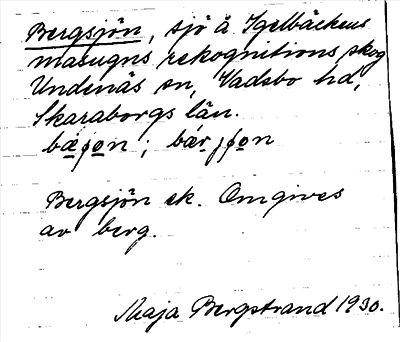 Bergsjön, sjö å Igelbäckens
masugns rekognitions skog
Undenäs sn, Vadsbo hd,
Skaraborgs län.
Bergsjön ek. Omgives
av berg.
Maja Bergstrand 1930.